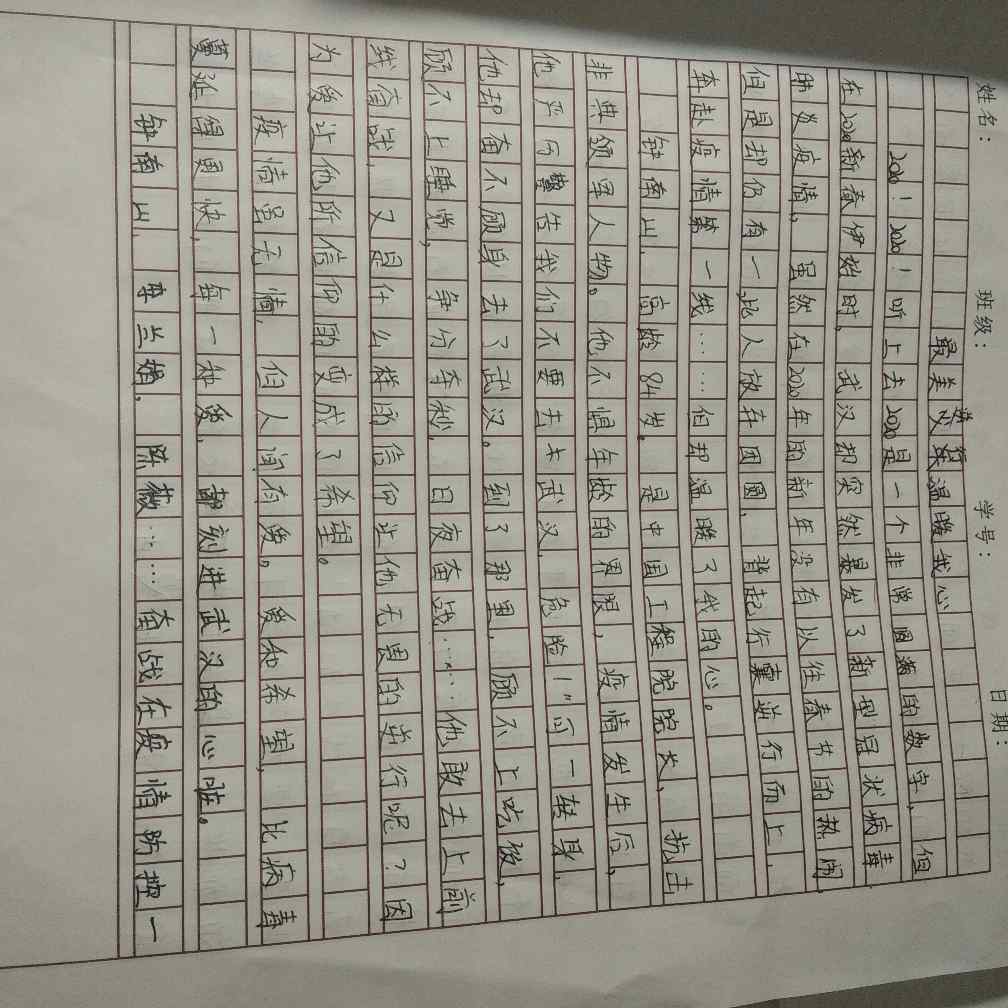 姓名： 班级： 学号： 日期：
最美逆行 温暖我心
2020！2020！听上去2020是一个非常圆满的数字，但
在2020新春伊始时，武汉却突然暴发了新型冠状病毒
肺炎疫情。虽然在2020年的新年没有以往春节的热闹，
但是却仍有一批人放弃团圆，背起行囊逆行而上，
奔赴疫情第一线……但却温暖了我的心。
钟南山，高龄84岁。是中国工程院院长，抗击
非典领军人物。他不惧年龄的界限，疫情发生后，
他严厉警告我们不要去武汉，危险！"可一转身，
他却奋不顾身去了武汉。到了那里，顾不上吃饭，
顾不上睡觉，争分夺秒，日夜奋战……他敢去上前
线奋战，又是什么样的信仰让他无畏的逆行呢？因
为爱让他所信仰的变成了希望。
疫情虽无情，但人间有爱。爱和希望，比病毒
蔓延得更快，每一种爱，都刻进武汉的心中。
钟南山，李兰娟，陈薇……奋战在疫情防控一